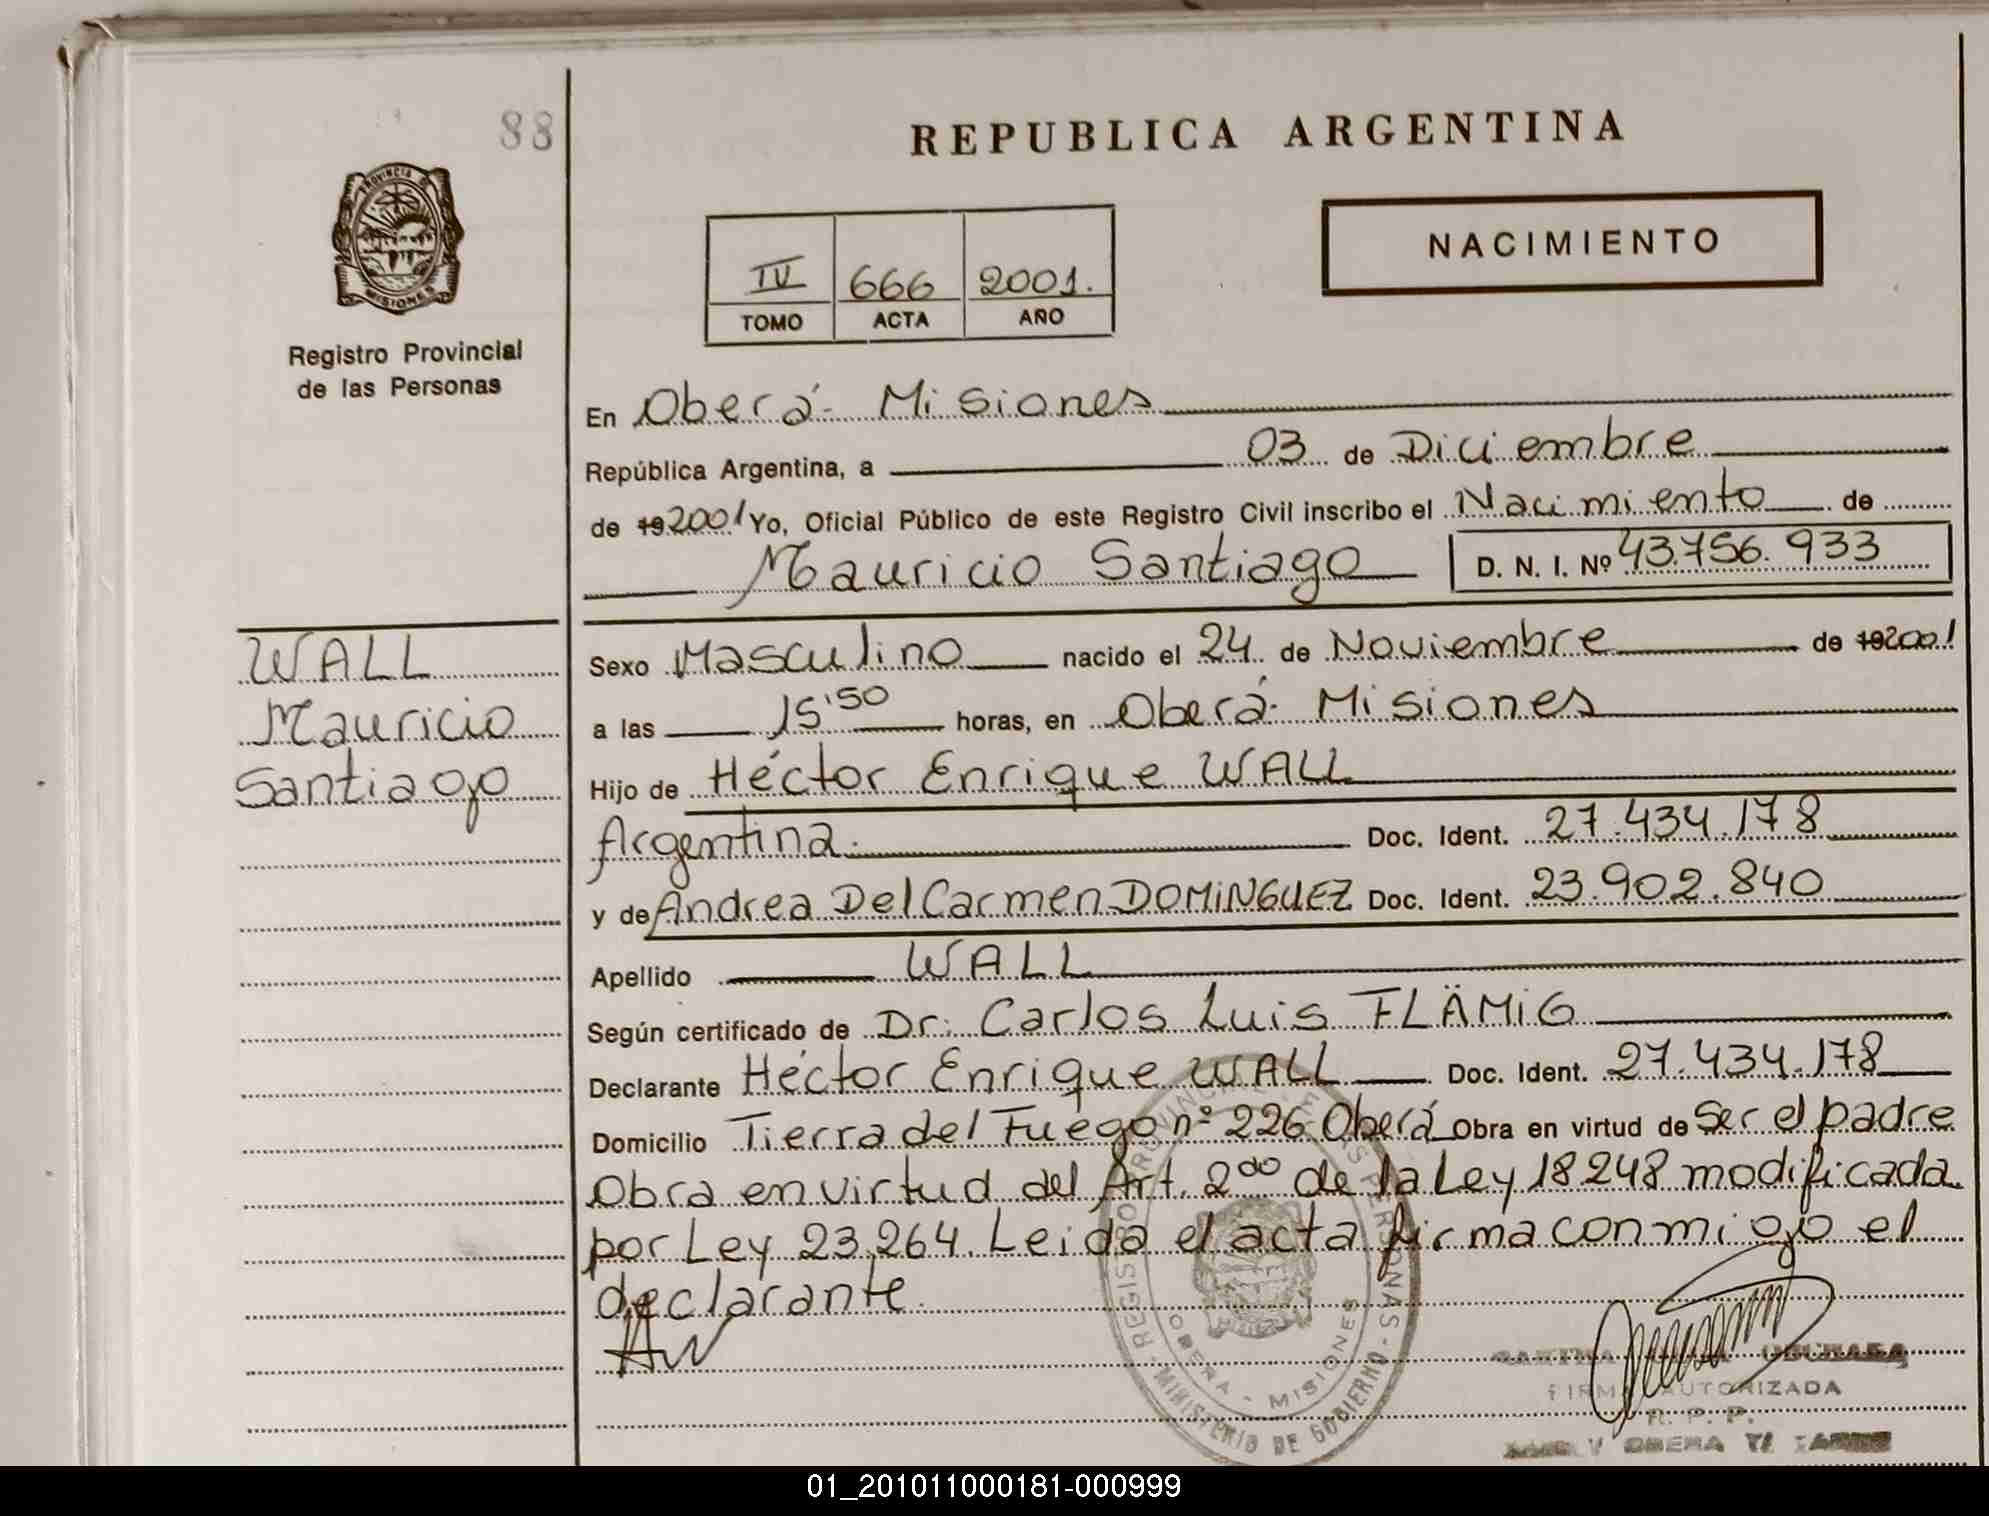 88
REPUBLICA ARGENTINA
PROVINCIA DE
MISIONES
NACIMIENTO
IV 666 2001.
TOMO ACTA AÑO
Registro Provincial
de las Personas
En Oberá - Misiones
República Argentina, a 03 de Diciembre
de 19 2001 Yo, Oficial Público de este Registro Civil inscribo el Nacimiento de
Mauricio Santiago D. N. I. Nº 43.756.933
WALL
Mauricio
Santiago
Sexo Masculino nacido el 24 de Noviembre de 19 2001
a las 15'50 horas, en Oberá - Misiones
Hijo de Héctor Enrique WALL
Argentina. Doc. Ident. 27.434.178
y de Andrea Del Carmen DOMiNGUEZ Doc. Ident. 23.902.840
Apellido WALL
Según certificado de Dr. Carlos Luis FLÄMiG
Declarante Héctor Enrique WALL Doc. Ident. 27.434.178
Domicilio Tierra del Fuego nº 226-Oberá Obra en virtud de Ser el padre
Obra en virtud del Art. 2do de la Ley 18248 modificada
por Ley 23.264. Leida el acta firma conmigo el
declarante.
REGISTRO PROVINCIAL DE LAS PERSONAS - MINISTERIO DE GOBIERNO -
OBERA - MISIONES
FIRMA AUTORIZADA
R. P. P.
OBERA
01_201011000181-000999